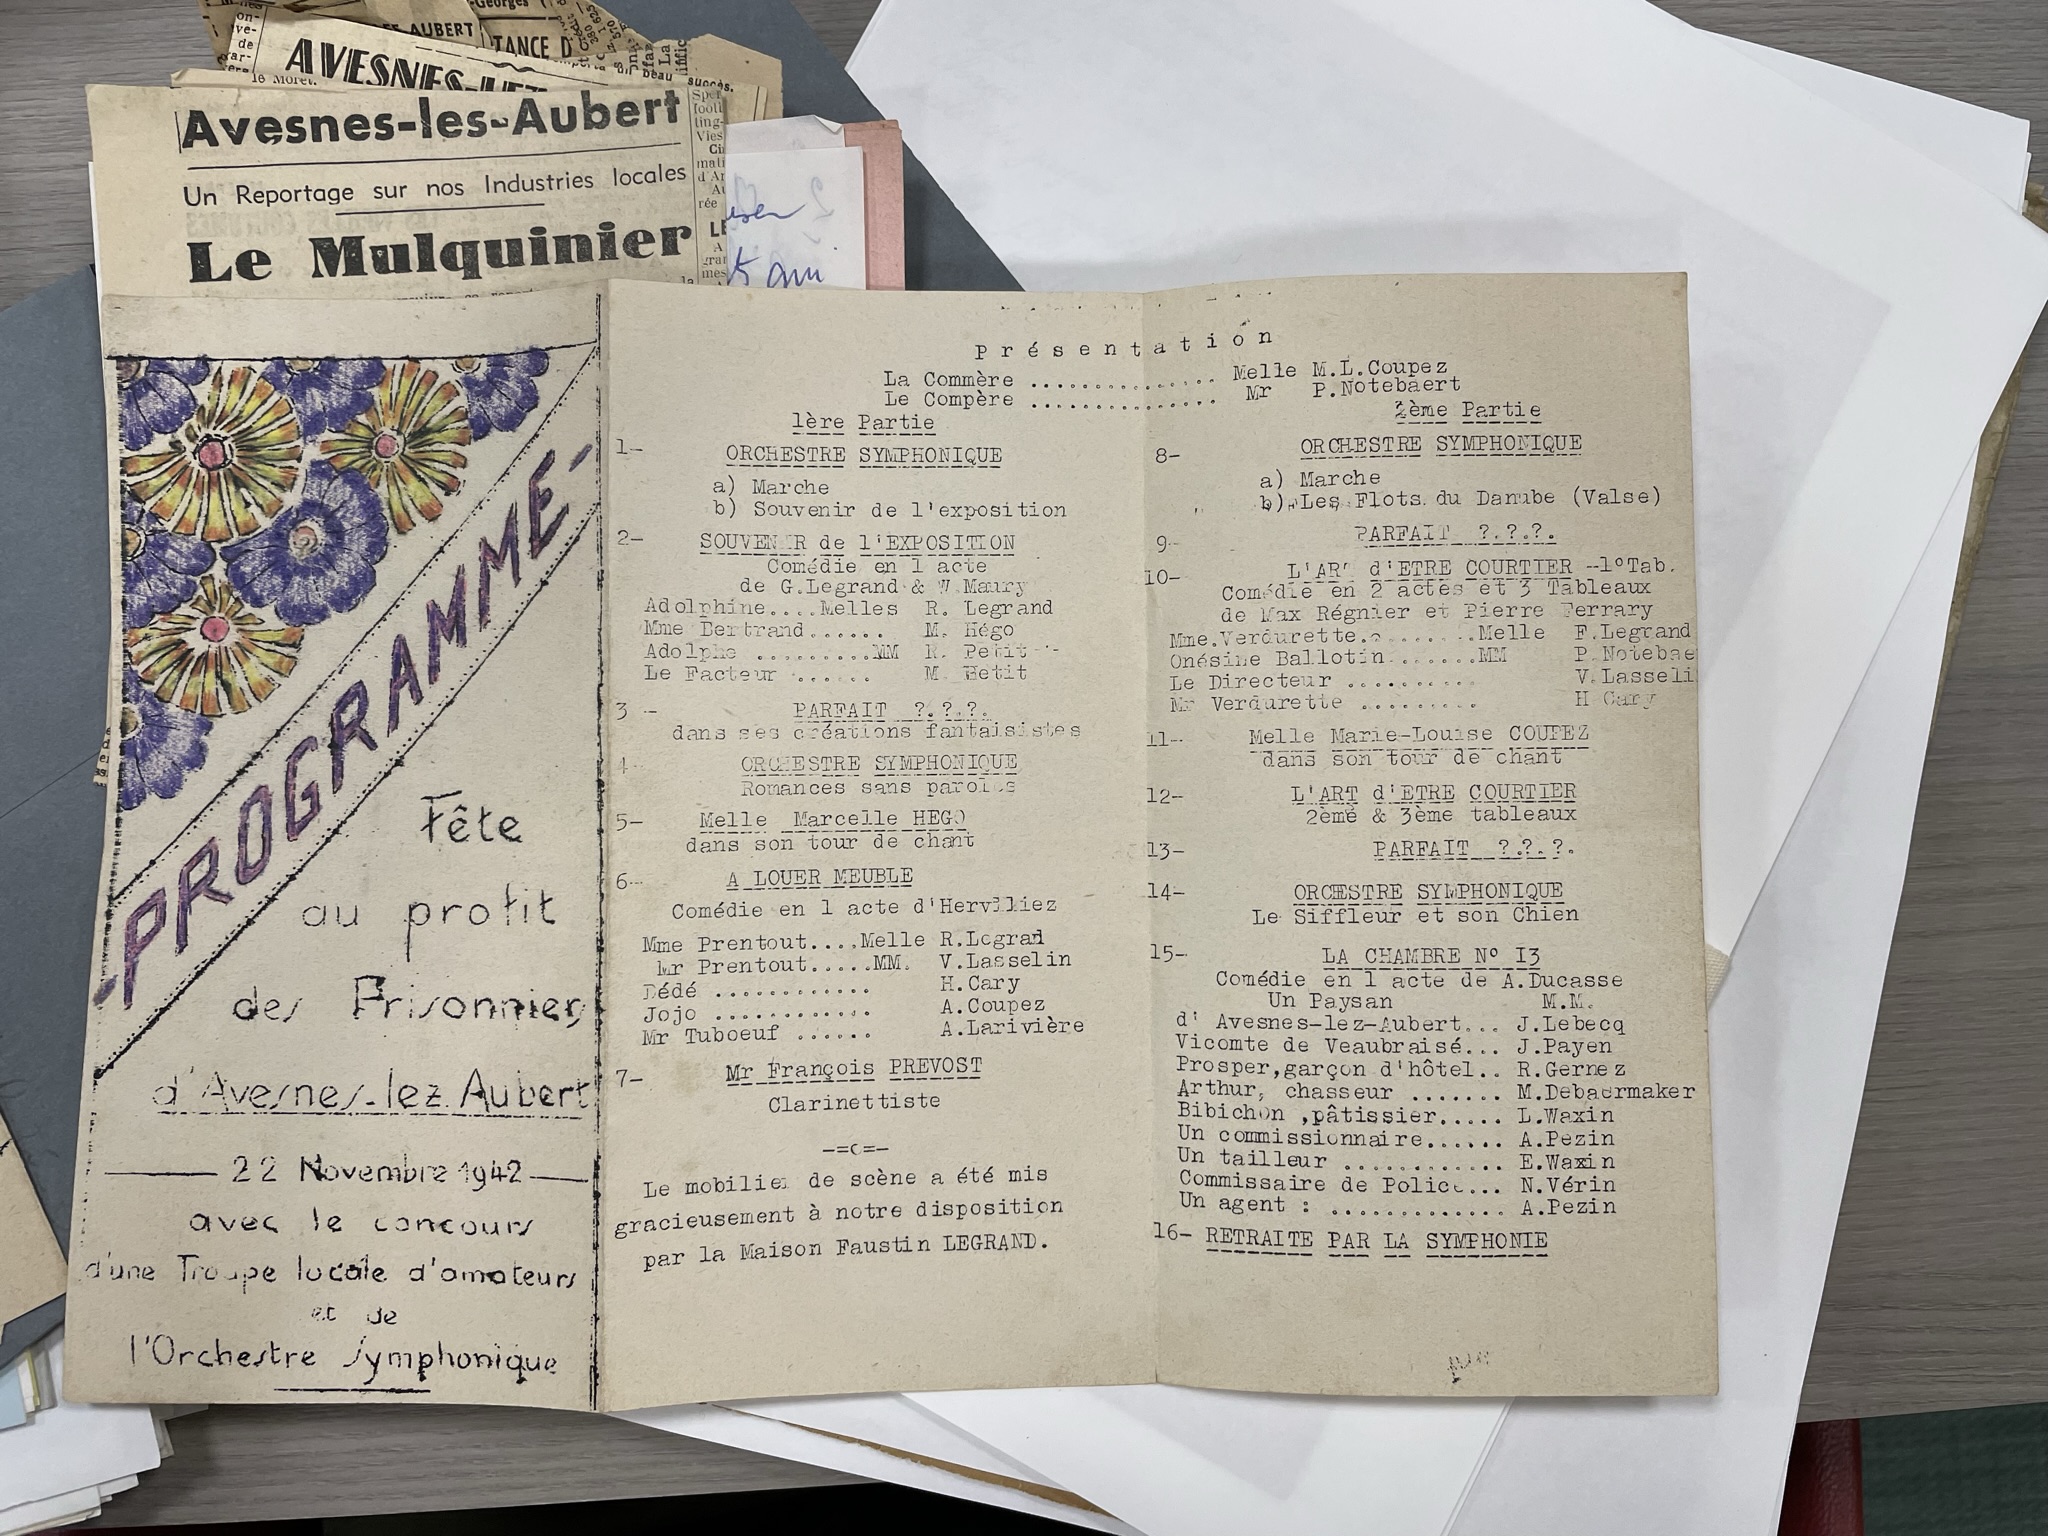 -Georges
AUBERT
TANCE D
AVESNES-LEZ
le Moret.
un beau succès.
Avesnes-les-Aubert
Un Reportage sur nos Industries locales
Le Mulquinier
-PROGRAMME-
Fête
au profit
des Prisonniers
d'Avesnes-lez Aubert
22 Novembre 1942
avec le concours
d'une Troupe locale d'amateurs
et de
l'Orchestre symphonique
Présentation
La Commère ............... Melle M.L.Coupez
Le Compère ............... Mr P.Notebaert
1ère Partie
1- ORCHESTRE SYMPHONIQUE
a) Marche
b) Souvenir de l'exposition
2- SOUVENIR de l'EXPOSITION
Comédie en 1 acte
de G.Legrand & W.Maury
Adolphine....Melles R. Legrand
Mme Bertrand...... M. Hégo
Adolphe .........MM R. Petit
Le Facteur ...... M. Petit
3 - PARFAIT ?.?.?.
dans ses créations fantaisistes
4- ORCHESTRE SYMPHONIQUE
Romances sans paroles
5- Melle Marcelle HEGO
dans son tour de chant
6- A LOUER MEUBLE
Comédie en 1 acte d'Hervilliez
Mme Prentout....Melle R.Legrad
Mr Prentout.....MM. V.Lasselin
Dédé ............ H.Cary
Jojo ............ A.Coupez
Mr Tuboeuf ...... A.Larivière
7- Mr François PREVOST
Clarinettiste
-=c=-
Le mobilier de scène a été mis
gracieusement à notre disposition
par la Maison Faustin LEGRAND.
2ème Partie
8- ORCHESTRE SYMPHONIQUE
a) Marche
b) Les Flots du Danube (Valse)
9- PARFAIT ?.?.?.
10- L'ART d'ETRE COURTIER -1°Tab.
Comédie en 2 actes et 3 Tableaux
de Max Régnier et Pierre Ferrary
Mme.Verdurette........Melle F.Legrand
Onésine Ballotin.......MM P.Notebae
Le Directeur .......... V.Lasseli
Mr Verdurette ......... H Cary
11- Melle Marie-Louise COUPEZ
dans son tour de chant
12- L'ART d'ETRE COURTIER
2ème & 3ème tableaux
13- PARFAIT ?.?.?.
14- ORCHESTRE SYMPHONIQUE
Le Siffleur et son Chien
15- LA CHAMBRE N° I3
Comédie en 1 acte de A.Ducasse
Un Paysan M.M.
d' Avesnes-lez-Aubert... J.Lebecq
Vicomte de Veaubraisé... J.Payen
Prosper,garçon d'hôtel.. R.Gernez
Arthur, chasseur ....... M.Debaermaker
Bibichon ,pâtissier..... L.Waxin
Un commissionnaire...... A.Pezin
Un tailleur ............ E.Waxin
Commissaire de Police... N.Vérin
Un agent : ............. A.Pezin
16- RETRAITE PAR LA SYMPHONIE